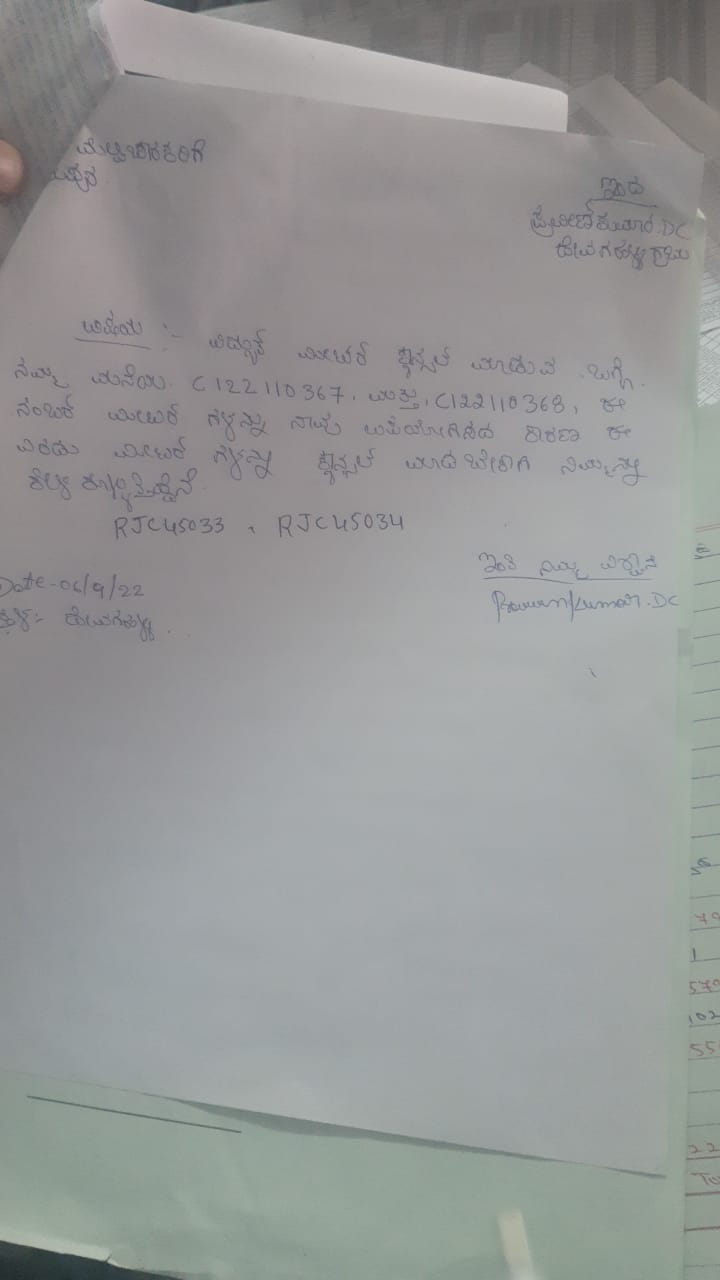 ಇಂದ
ಪ್ರವೀಣ್ ಕುಮಾರ.DC
ವಿಷಯ :- ವಿದ್ಯುತ್ ಮೀಟರ್ ಕ್ಯಾನ್ಸಲ್ ಮಾಡುವ ಬಗ್ಗೆ.
ನಮ್ಮ ಮನೆಯ C122110367, ಮತ್ತು, C122110368, ಈ
ನಂಬರ್ ಮೀಟರ್ ಗಳನ್ನು ನಾವು ಕಾರಣ ಈ
ಎರಡು ಮೀಟರ್ ಗಳನ್ನು ಕ್ಯಾನ್ಸಲ್ ಮಾಡಬೇಕಾಗಿ ನಿಮ್ಮನ್ನು
ಕೇಳಿ ಕೊಳ್ಳುತ್ತಿದ್ದೇನೆ.
RJC45033 , RJC45034
ಇಂತಿ ನಿಮ್ಮ ವಿಶ್ವಾಸಿ
Date-06/9/22
Praveenkumar.DC
79
1
570
102
55
22